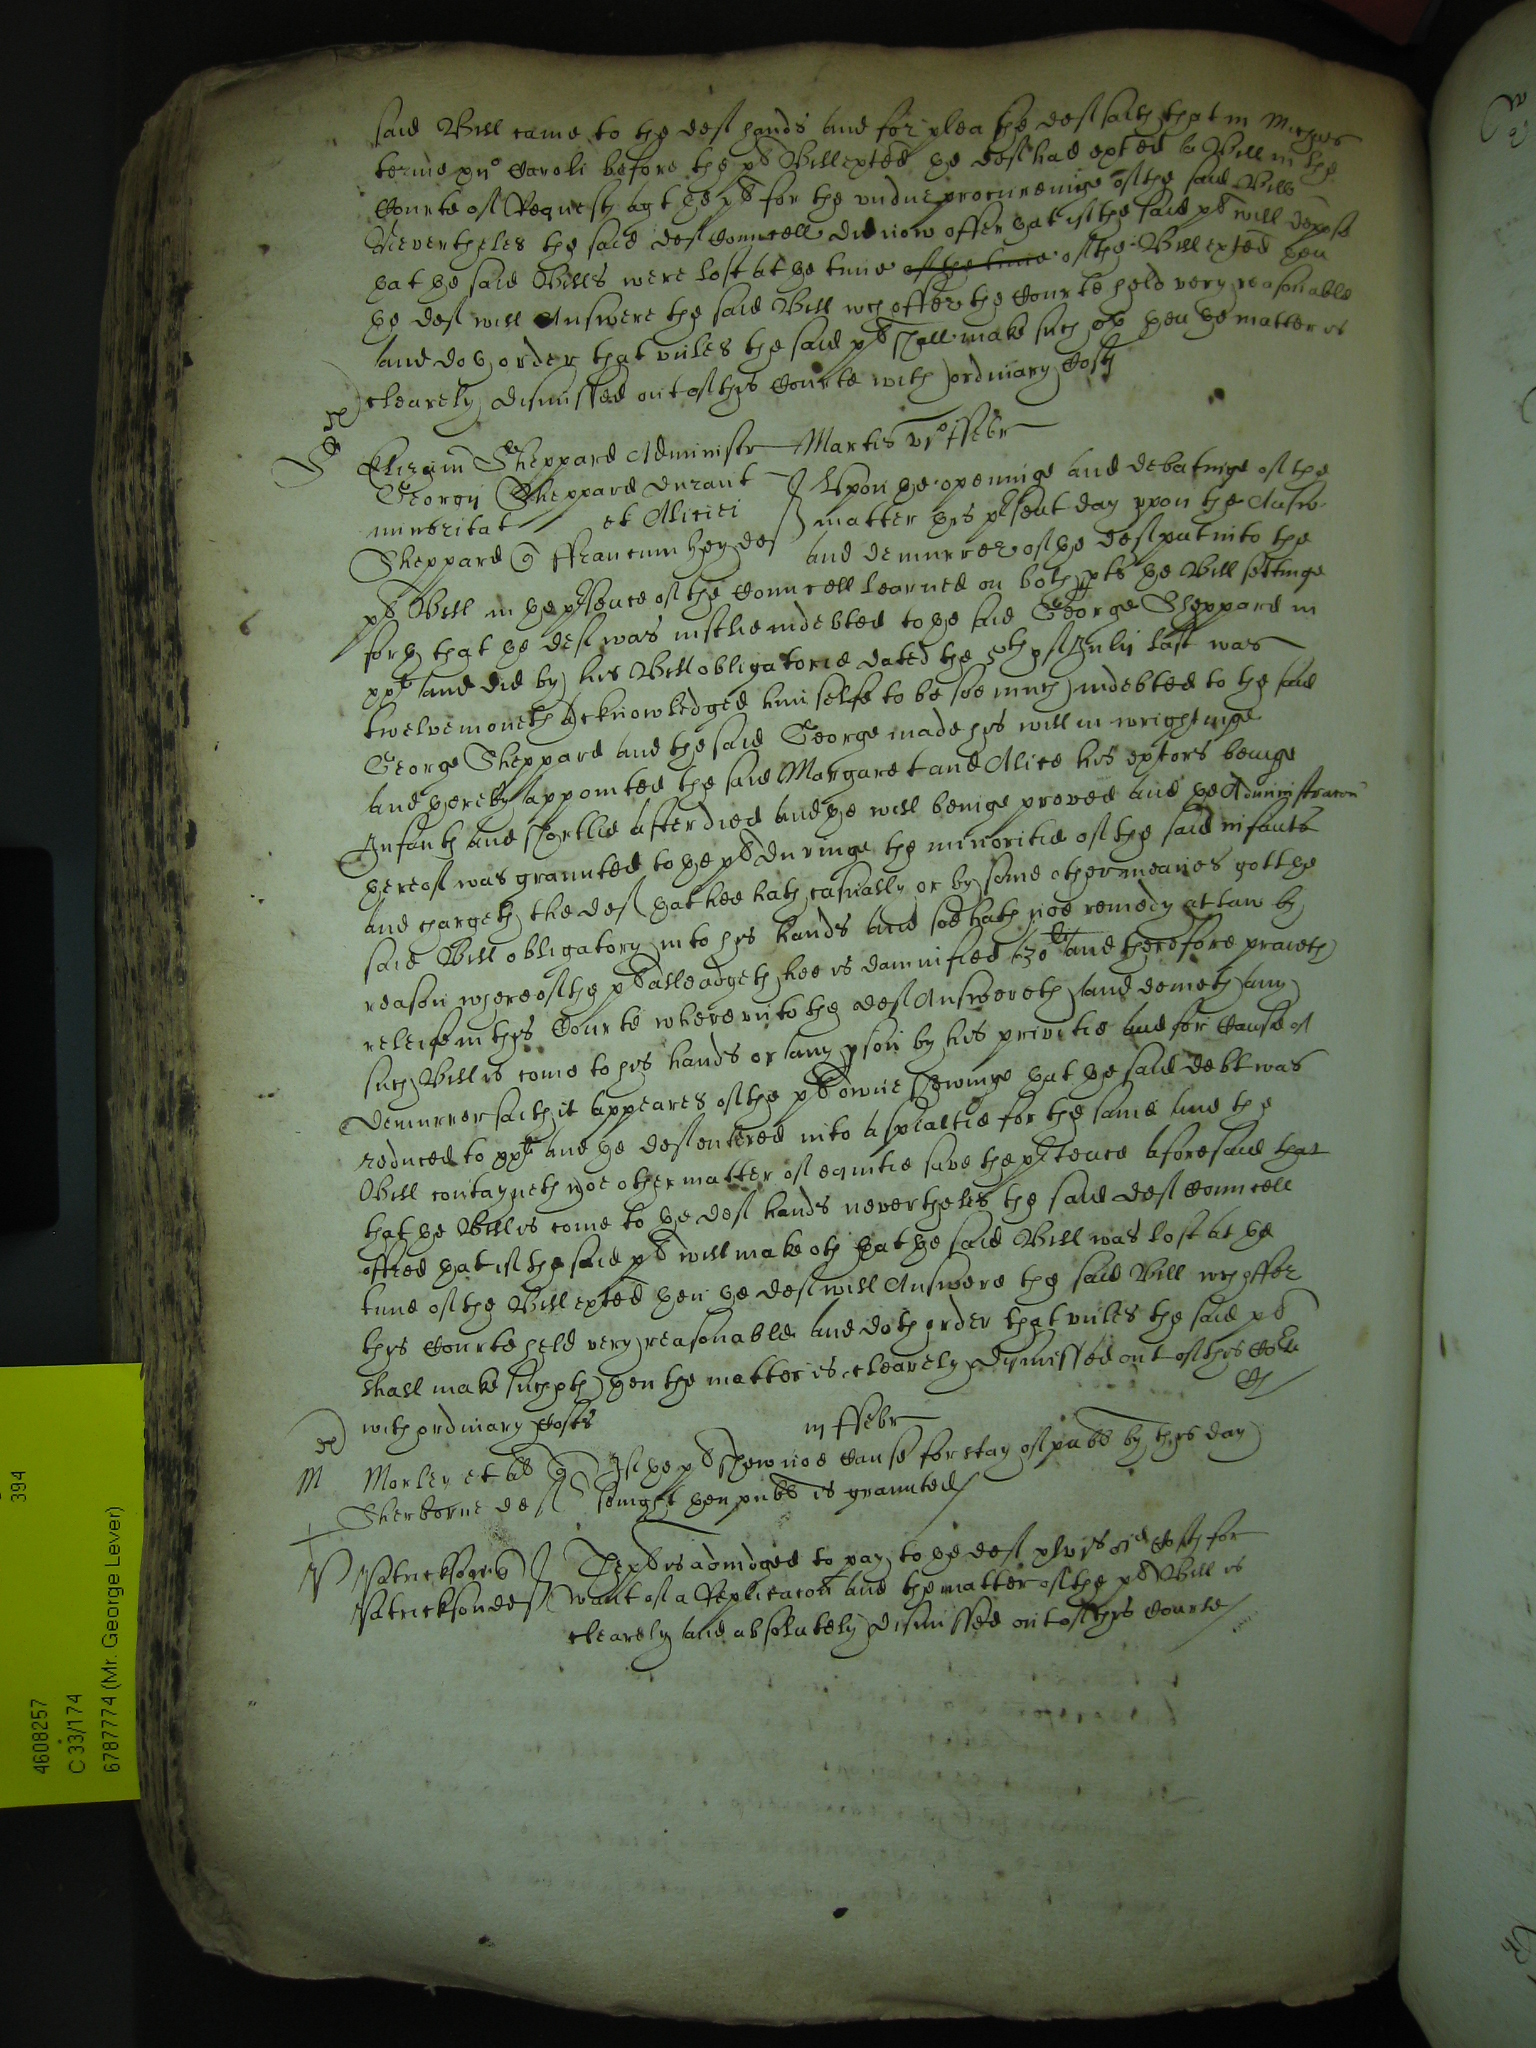 said Bill came to the deft hands and for plea the deft saith that in Michas
terme prio Caroli before the plt Bill exted he deft had exted a Bill in the
Courte of Request agt ye plt for the undue procureinge of the said Bills
Nevertheles the said deft Councell did now offer yat if the said plt will depose
yat ye said Bills were lost at ye time of the time of the Bill exted yen
ye deft will Answere the said Bill wch offer the Courte held very reasonable
and doth order that unles the said plt shall make such oth yen ye matter is
clearely dismissed out of this Courte with ordinary Costs
Martis vjo ffebr
Sheppard Administr
Georgij Sheppard durant
minoritat et Aliciei
Sheppard q ffrancum heydes
Upon ye openinge and debatinge of the
matter this psent day upon the Answ
and demurrer of ye deft put into the
plt Bill in ye psence of the Councell learned on both pts ye Bill settinge
forth that ye deft was iustlie indebted to ye said George Sheppard in
xxli and did by his Bill obligatorie dated the 5th of Julij last was
twelvemoneth Acknowledged himselfe to be soe much indebted to the said
George Sheppard and the said George made his will in wrightinge
and thereby appointed the said Margaret and Alice his extors beinge
Infants and shortlie after died and ye will beinge proved and ye Administracon
thereof was graunted to ye plt duringe the minoritie of the said infants
and chargeth the deft yat hee hath casually or by some other meanes gott ye
said Bill obligatory into his hands and soe hath noe remedy at law by
reason whereof the plt alleadgeth hee is damnified 30li and therefore praieth
releife in this Courte whereunto the deft Answereth and denieth any
such Bill is come to his hands or any pson by his privitie and for Cause of
Demurrer saith it appeares of the plt owne shewinge yat ye said debt was
reduced to xxli and ye deft entered into a spialtie for the same and the
Bill contayneth noe other matter of equitie save the ptence aforesaid that
that ye Bill is come to ye deft hands nevertheles the said deft Councell
offred yat if the said plt will make oth yat ye said Bill was lost at ye
time of the Bill exted yen ye deft will Answere the said Bill wch offer
this Courte held very reasonable and doth order that unles the said plt
shall make such oth yen the matter is clearely dismissed out of this Cort
with ordinary Costs
in ffebr
M
Morley et al q
Sherborne deft
If ye plt shew noe Cause for stay of publ by this day
senight yen publ is graunted
P
Patrickson q
Patrickson deft
The plt is adiudged to pay to ye deft xlvjs viijd Costs for
want of a Replicacon and the matter of the plt Bill is
clearely and absolutely dismissed out of this Courte
394
4608257
C 33/174
6787774 (Mr. George Lever)